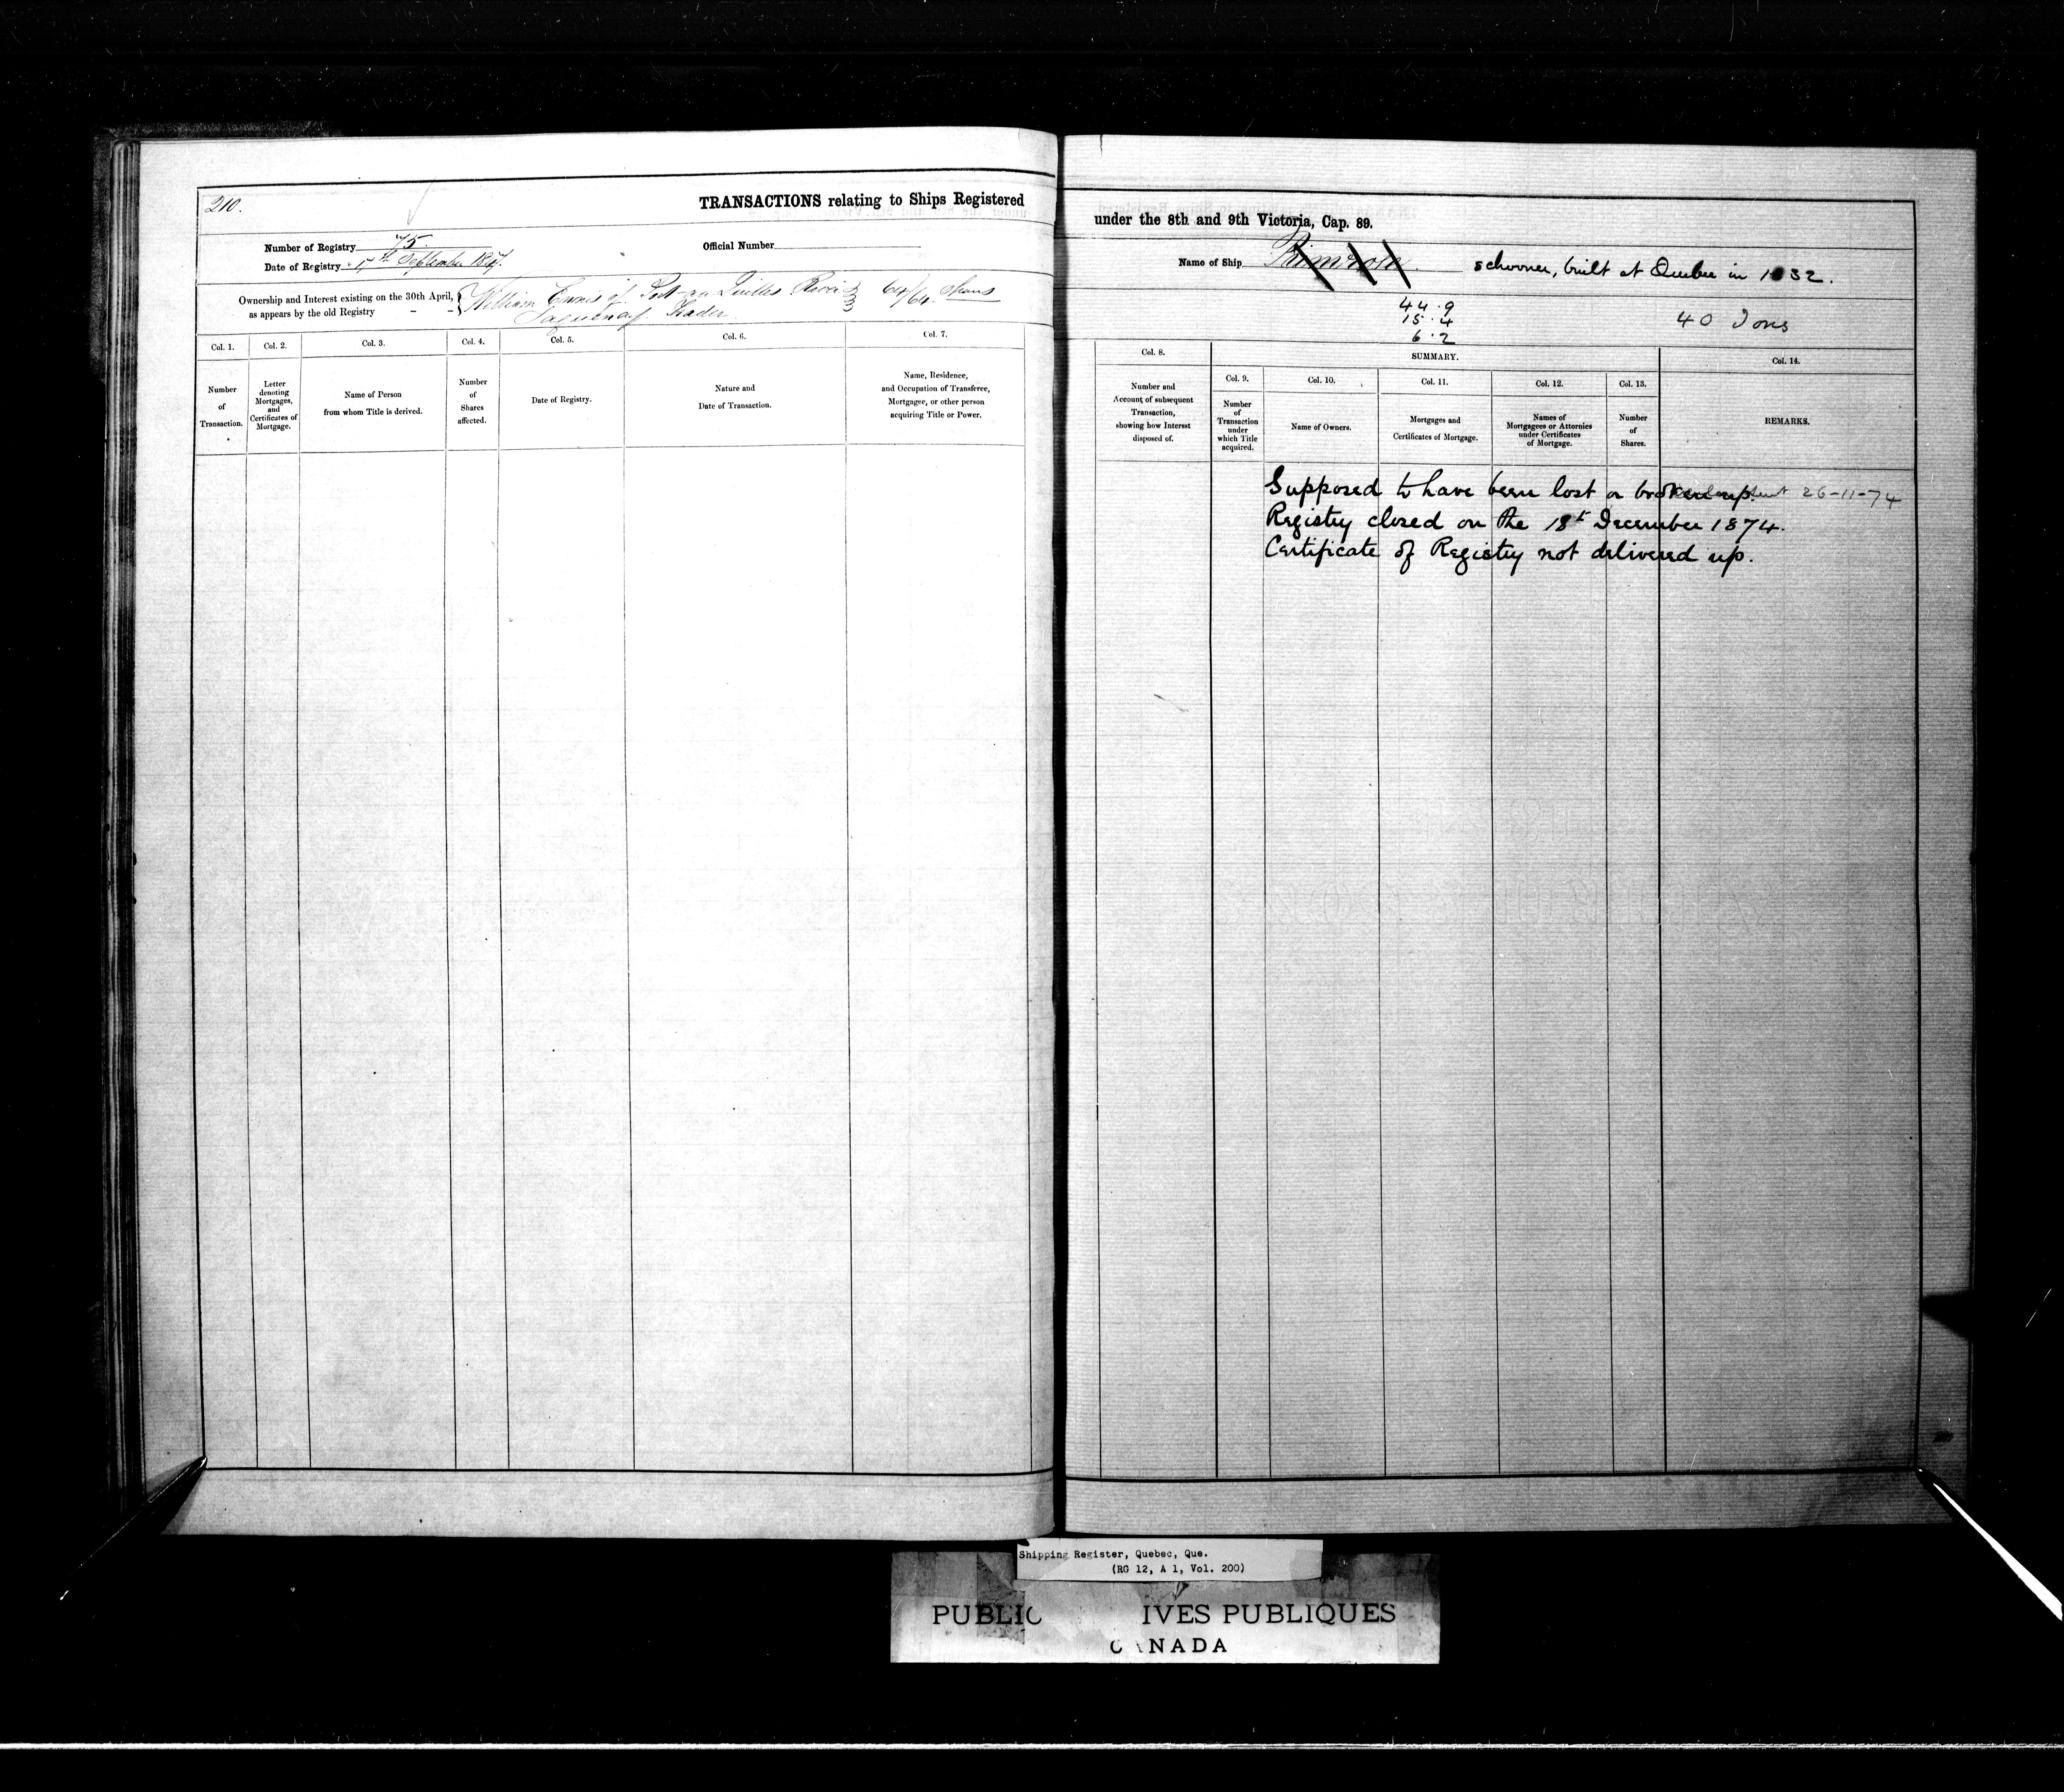 210.
TRANSACTIONS relating to Ships Registered
Number of Registry 75.
Official Number
Date of Registry 17th September 184
Ownership and Interest existing on the 30th April,
as appears by the old Registry - -
William Ennis of Port au Quilles River
Saguenay Trader
64/64 Shares
Col. 1. Col. 2. Col. 3. Col. 4. Col. 5. Col. 6. Col. 7.
Number of Transaction.
Letter denoting Mortgages, and Certificates of Mortgage.
Name of Person from whom Title is derived.
Number of Shares affected.
Date of Registry.
Nature and Date of Transaction.
Name, Residence, and Occupation of Transferee, Mortgagee, or other person acquiring Title or Power.
under the 8th and 9th Victoria, Cap. 89.
Name of Ship Primrose schooner, built at Quebec in 1832.
44.9
15.4
6.2
40 Tons
Col. 8. SUMMARY. Col. 14.
Col. 9. Col. 10. Col. 11. Col. 12. Col. 13.
Number and Account of subsequent Transaction, showing how Interest disposed of.
Number of Transaction under which Title acquired.
Name of Owners.
Mortgages and Certificates of Mortgage.
Names of Mortgagees or Attornies under Certificates of Mortgage.
Number of Shares.
REMARKS.
Supposed to have been lost or broken up. sent 26-11-74
Registry closed on the 18th December 1874.
Certificate of Registry not delivered up.
Shipping Register, Quebec, Que.
(RG 12, A 1, Vol. 200)
PUBLIC IVES PUBLIQUES
CANADA